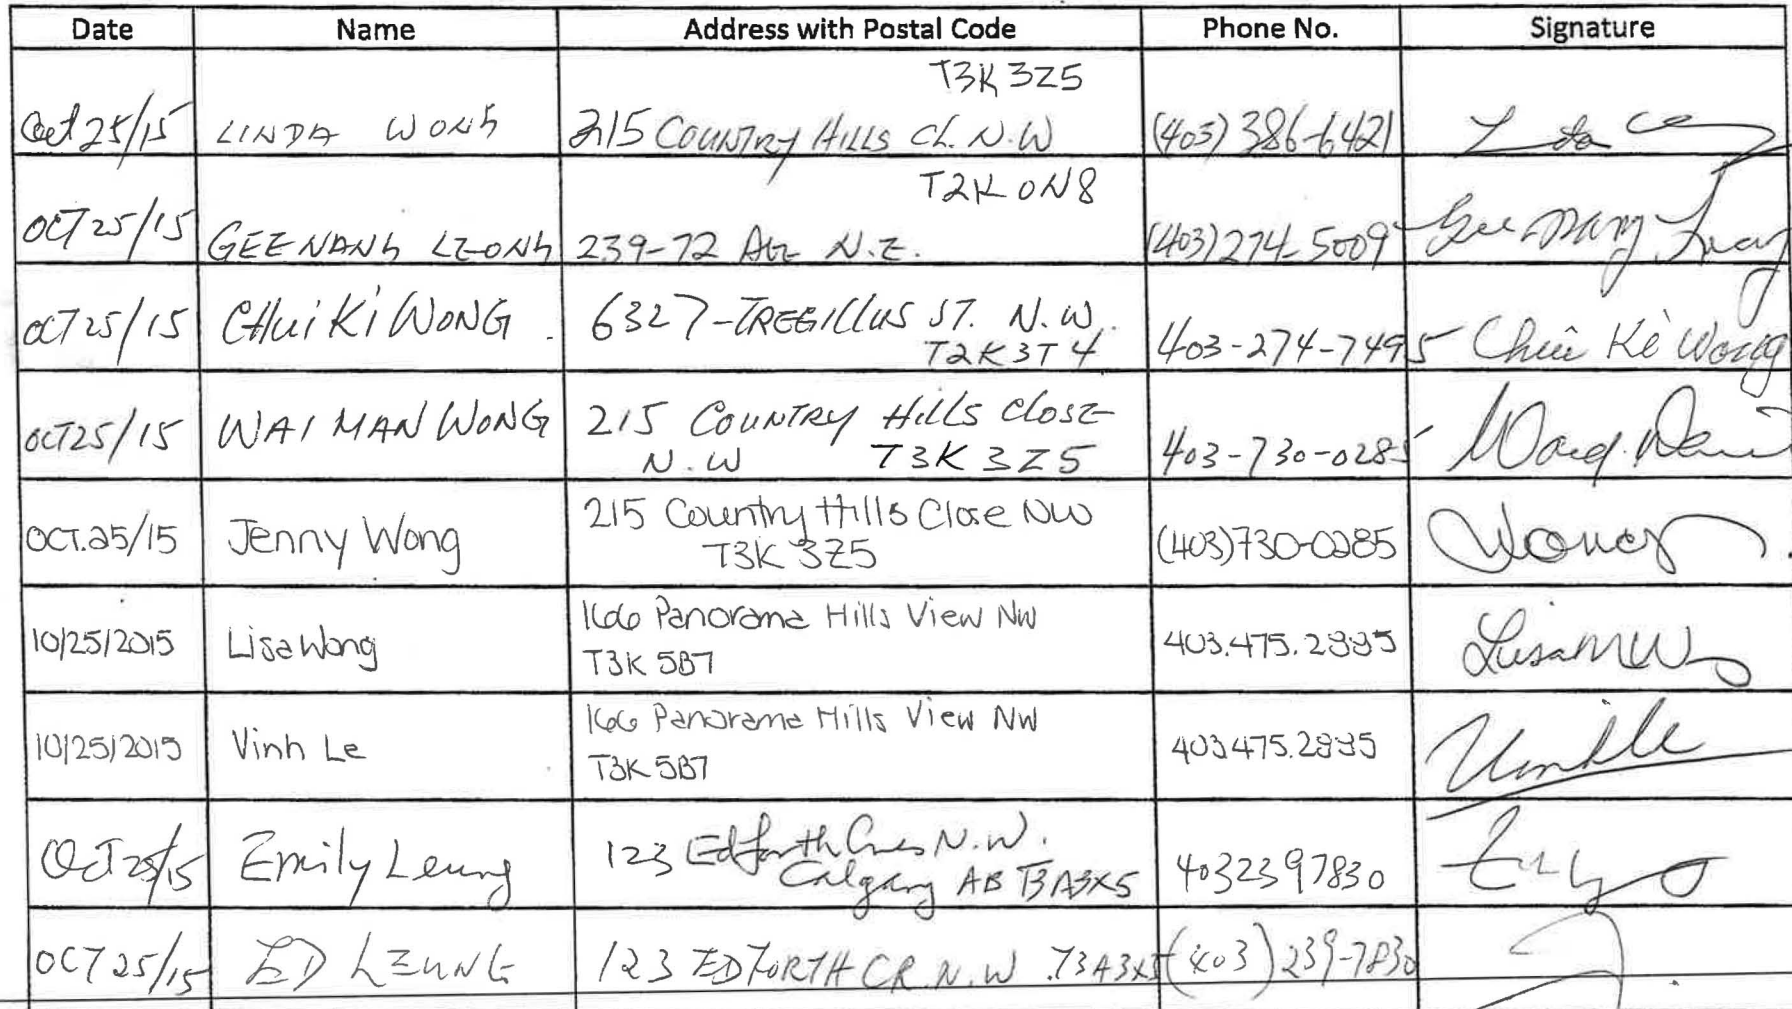 Date Name Address with Postal Code Phone No. Signature
T3K 3Z5
Oct 25/15 LINDA WONG 215 COUNTRY HILLS CL. N.W (403) 386-6421
T2K 0N8
OCT 25/15 GEE NANG LEONG 239-72 AVE N.E. (403) 274-5009 Gee Nang Leong
OCT 25/15 CHUI KI WONG. 6327-TREGILLUS ST. N.W.
T2K 3T4 403-274-7495 Chui Ki Wong
OCT 25/15 WAI MAN WONG 215 COUNTRY HILLS CLOSE
N.W T3K 3Z5 403-730-0285
OCT.25/15 Jenny Wong 215 Country Hills Close NW
T3K 3Z5 (403)730-0285 Wong
10/25/2015 Lisa Wong 166 Panorama Hills View NW
T3K 5B7 403.475.2885
10/25/2015 Vinh Le 166 Panorama Hills View NW
T3K 5B7 403.475.2885
Oct 25/15 Emily Leung 123 Edforth Cres N.W.
Calgary AB T3A3X5 4032397830
OCT 25/15 ED LEUNG 123 EDFORTH CR. N.W T3A3X5 (403) 239-7830